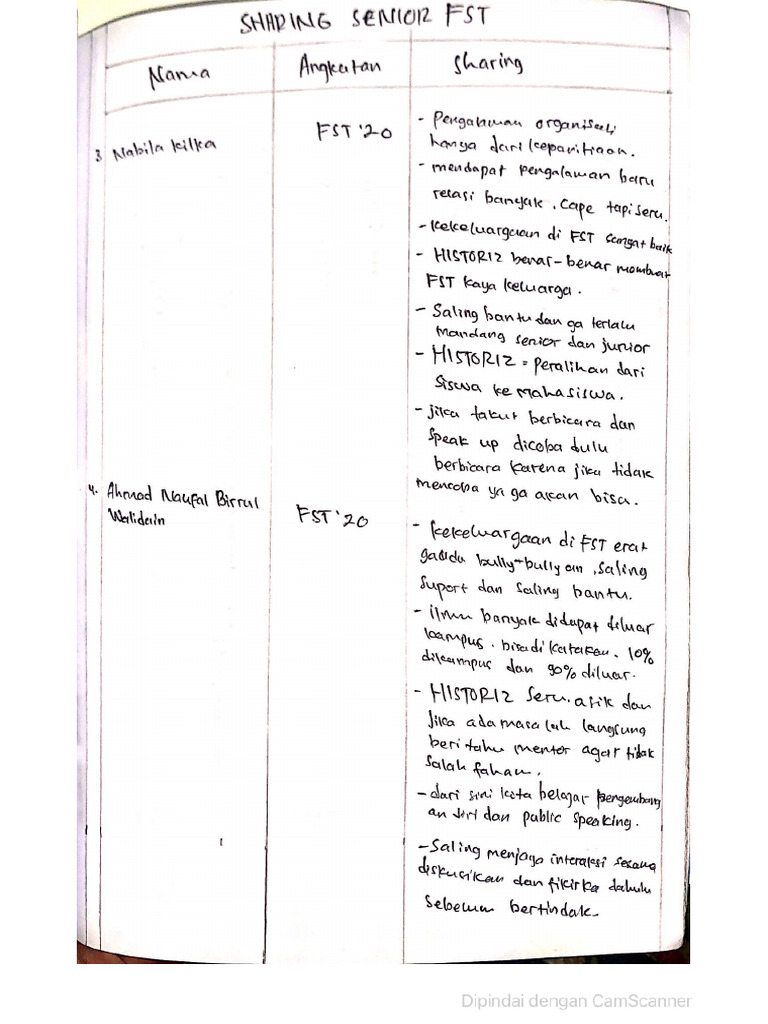 SHARING SENIOR FST
Nama Angkatan Sharing
3 Nabila Kilka FST '20
- Pengalaman organisasi
hanya dari kepanitiaan.
- mendapat pengalaman baru
relasi banyak. Cape tapi seru.
- kekeluargaan di FST sangat baik
- HISTORIZ benar-benar membuat
FST kaya keluarga.
- Saling bantu dan ga terlalu
mandang senior dan junior
- HISTORIZ = Peralihan dari
Siswa ke Mahasiswa.
- jika takut berbicara dan
Speak up dicoba dulu
berbicara karena jika tidak
mencoba ya ga akan bisa.
4. Ahmad Naufal Birrul
Walidain FST '20
- kekeluargaan di FST erat
gaada bully-bullyan, saling
Suport dan saling bantu.
- ilmu banyak didapat diluar
kampus. bisa dikatakan. 10%
dikampus dan 90% diluar.
- HISTORIZ Seru. asik dan
jika ada masalah langsung
beri tahu mentor agar tidak
Salah faham.
- dari sini kita belajar pengembang
an diri dan public speaking.
- Saling menjaga interaksi
diskusikan dan fikirka dahulu
Sebelum bertindak.
Dipindai dengan CamScanner